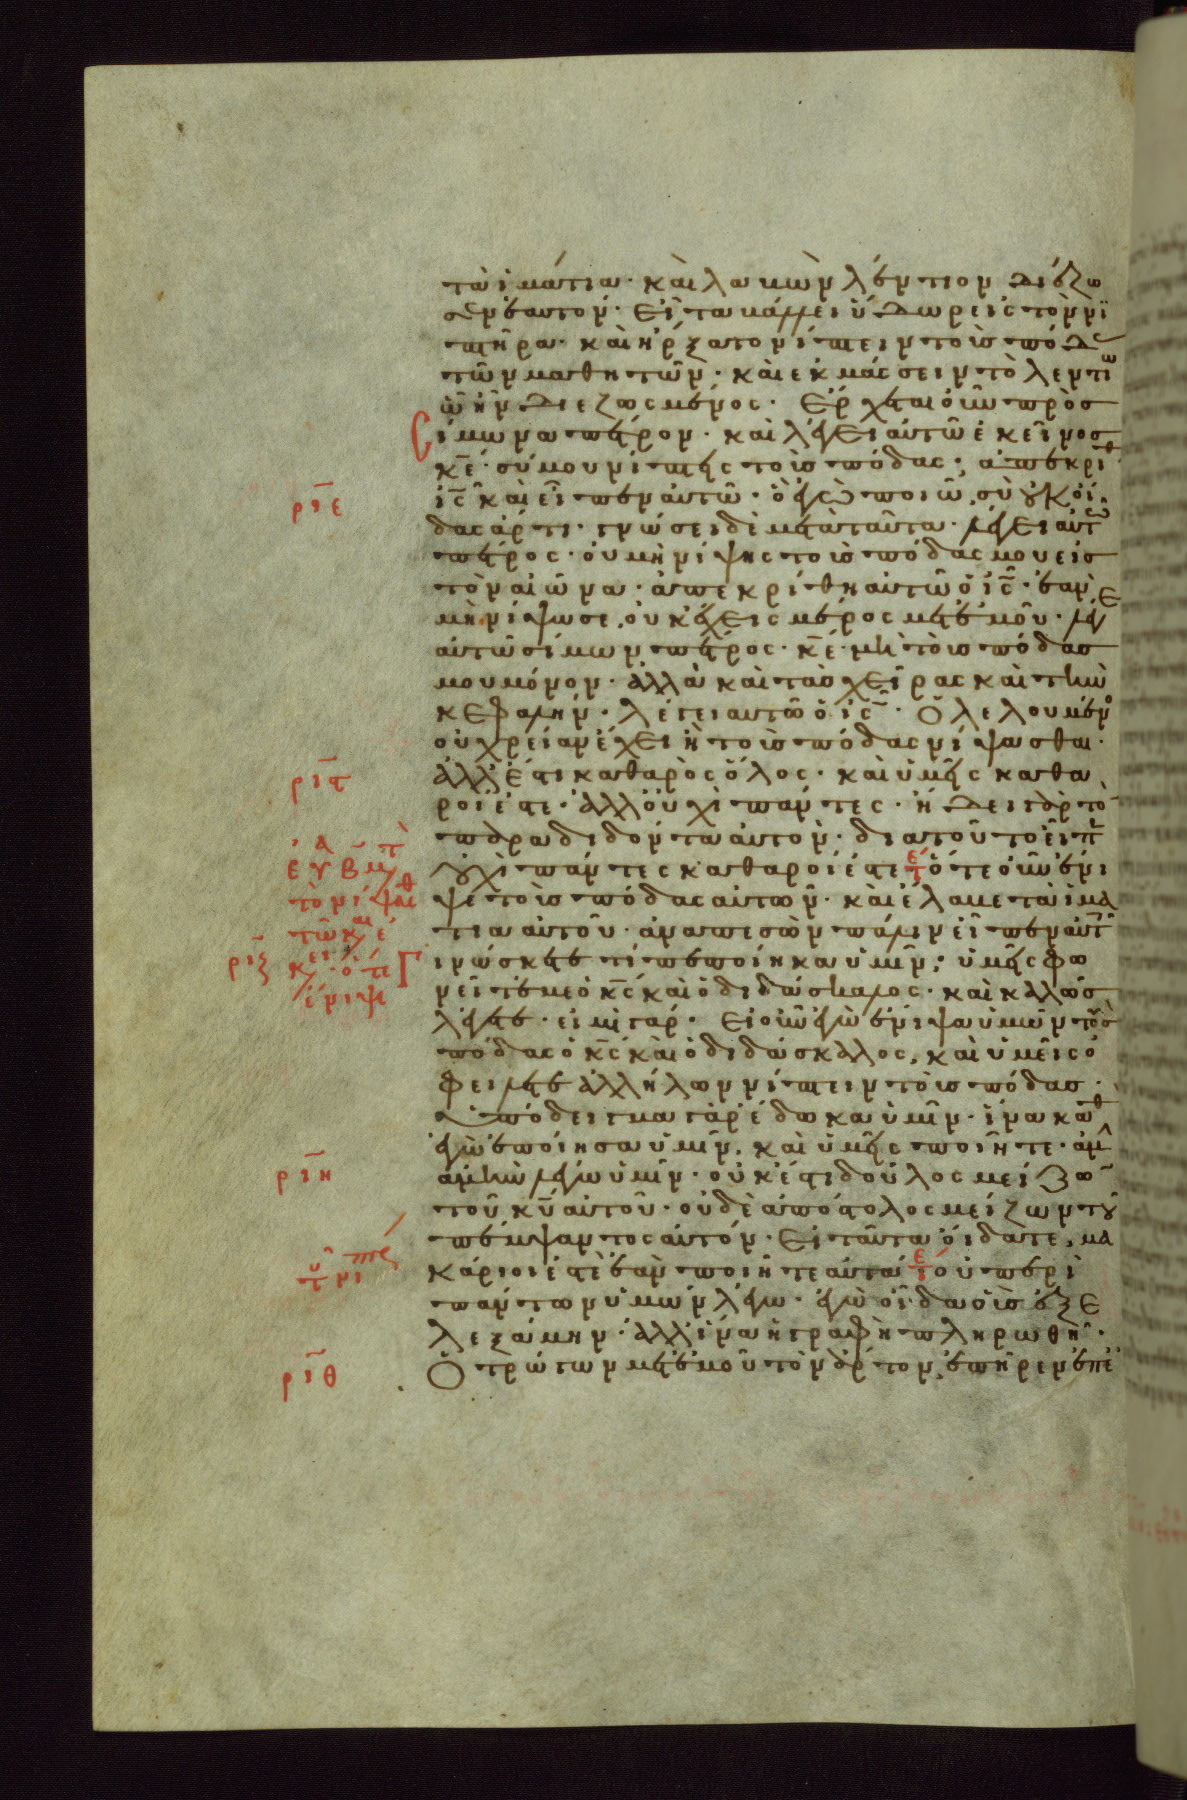 τὰ ἱμάτια· καὶ λαβὼν λέντιον διέζω
σεν ἑαυτόν· Εἶτα βάλλει ὕδωρ εἰς τὸν νι
πτῆρα· καὶ ἤρξατο νίπτειν τοὺς πόδας
τῶν μαθητῶν· καὶ ἐκμάσσειν τὸ λεντίω
ὧ ἦν διεζωσμένος· Ἔρχεται οὖν πρὸς
Σίμωνα πέτρον· καὶ λέγει αὐτῶ ἐκεῖνος
κε· σύ μου νίπτεις τοὺς πόδας; ἀπεκρίθ
ριε
ις καὶ εἶπεν αὐτῶ· ὃ ἐγὼ ποιῶ, σὺ οὐκ οἶ
δας ἄρτι· γνώσει δὲ μετὰ ταῦτα· λέγει αὐτῶ
πέτρος· οὐ μὴ νίψης τοὺς πόδας μου εἰς
τὸν αἰῶνα· ἀπεκρίθη αὐτῶ ὁ ις· ἐὰν
μὴ νίψω σε, οὐκ ἔχεις μέρος μετ' ἐμοῦ· λέγει
αὐτῶ σίμων πέτρος· κε· μὴ τοὺς πόδας
μου μόνον· ἀλλὰ καὶ τὰς χεῖρας καὶ τὴν
κεφαλήν· λέγει αυτῶ ὁ ις· Ὁ λελουμένο
οὐ χρείαν ἔχει ἢ τοὺς πόδας νίψασθαι·
ρις
ἀλλ' ἔστι καθαρὸς ὅλος· καὶ ὑμεῖς καθα
ροί ἐστε· ἀλλ' οὐχὶ πάντες· ἤδει γὰρ τὸ
παραδιδόντα αὐτόν· διατοῦτο εἶπ
οὐχὶ πάντες καθαροί ἐστε ὅτε οὖν ἔνι
ψε τοὺς πόδας αὐτων· καὶ ἔλαβε τὰ ἱμα
τια αὐτοῦ· ἀναπεσὼν πάλιν εἶπεν αὐτ
ριζ
γινώσκετε τί πεποίηκα ὑμῖν; ὑμεῖς φω
νεῖτέ με ὁ κς καὶ ὁ διδάσκαλος· καὶ καλῶς
λέγετε· εἰμὶ γάρ· Εἰ οὖν ἐγὼ ἔνιψα ὑμῶν τοὺς
πόδας ὁ κς καὶ ὁ διδάσκαλος, καὶ ὑμεῖς ὀ
φείλετε ἀλλήλων νίπτειν τοὺς πόδας·
Ὑπόδειγμα γὰρ ἔδωκα ὑμῖν· ἵνα καθ
ἐγὼ ἐποίησα ὑμῖν, καὶ ὑμεῖς ποιῆτε· ἀμ
ριη
ἀμὴν λέγω ὑμῖν· οὐκ ἔστι δοῦλος μείζω
τοῦ κυ αὐτοῦ· οὐδὲ ἀπόστολος μείζων τοῦ
πέμψαντος αὐτόν· Εἰ ταῦτα οἴδατε, μα
κάριοί ἐστε ἐὰν ποιῆτε αὐτά οὐ περὶ
πάντων ὑμῶν λέγω· ἐγὼ οἶδα οὓς ἐξε
λεξάμην· ἀλλ' ἵνα ἡ γραφὴ πληρωθῆ·
ριθ
Ὁ τρώγων μετ' ἐμοῦ τὸν ἄρτον, ἐπῆρεν ἐπ' ἐ